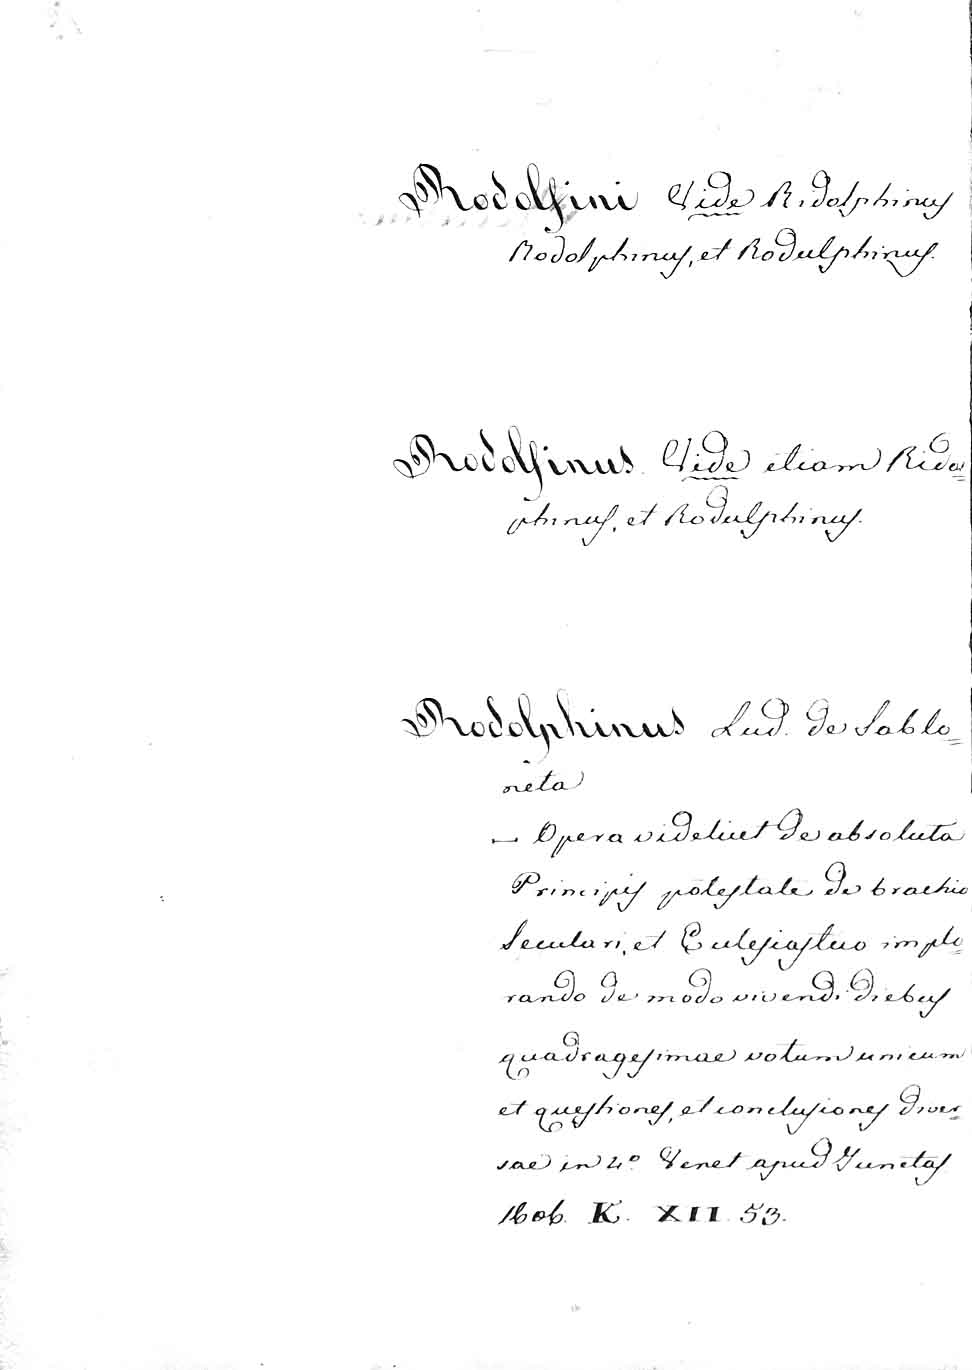 Rodolfini Vide Ridolphinus
Rodolphinus, et Rodulphinus.
Rodolfinus Vide etiam Ridol=
phinus, et Rodulphinus.
Rodolphinus Lud. de Sablo=
neta
— Opera videlicet de absoluta
Principis potestate de brachio
Seculari, et Eclesiastico implo=
rando de modo vivendi diebus
quadragesimae votum unicum
et questiones, et conclusiones diver=
sae in 4.º Venet apud Junctas
1606. K. XII. 53.